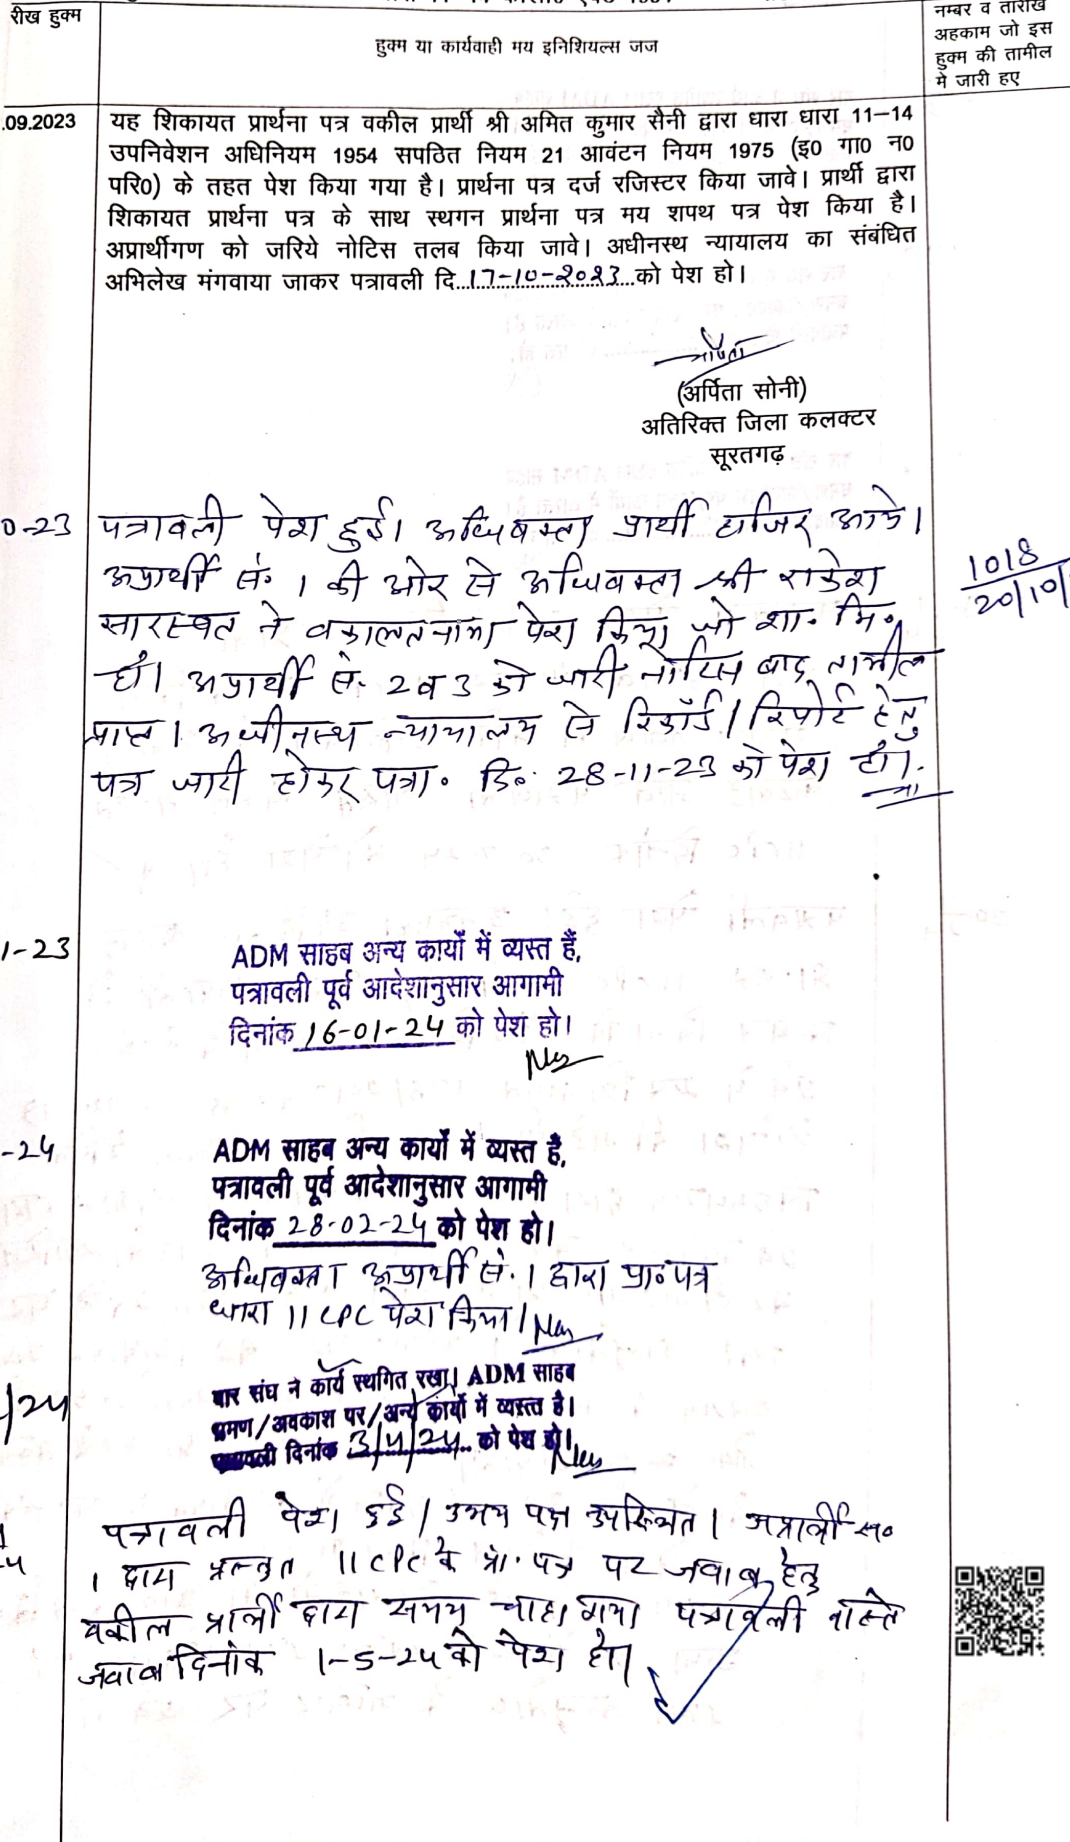 रीख हुक्म
हुक्म या कार्यवाही मय इनिशियल्स जज
नम्बर व तारीख
अहकाम जो इस
हुक्म की तामील
मे जारी हए
.09.2023
यह शिकायत प्रार्थना पत्र वकील प्रार्थी श्री अमित कुमार सैनी द्वारा धारा धारा 11-14
उपनिवेशन अधिनियम 1954 सपठित नियम 21 आवंटन नियम 1975 (इ0 गा0 न0
परि0) के तहत पेश किया गया है। प्रार्थना पत्र दर्ज रजिस्टर किया जावे। प्रार्थी द्वारा
शिकायत प्रार्थना पत्र के साथ स्थगन प्रार्थना पत्र मय शपथ पत्र पेश किया है।
अप्रार्थीगण को जरिये नोटिस तलब किया जावे। अधीनस्थ न्यायालय का संबंधित
अभिलेख मंगवाया जाकर पत्रावली दि...17-10-2023...को पेश हो।
(अर्पिता सोनी)
अतिरिक्त जिला कलक्टर
सूरतगढ़
0-23
पत्रावली पेश हुई। अधिवक्ता प्रार्थी हाजिर आये।
अप्रार्थी सं. 1 की ओर से अधिवक्ता श्री राकेश
सारस्वत ने वकालतनामा पेश किया जो शा. मि.
हो। अप्रार्थी सं. 2 व 3 को जारी नोटिस बाद तामील
प्राप्त। अधीनस्थ न्यायालय से रिकॉर्ड/रिपोर्ट हेतु
पत्र जारी होकर पत्रा. दि. 28-11-23 को पेश हो।
1018
20/10/
1-23
ADM साहब अन्य कार्यों में व्यस्त हैं,
पत्रावली पूर्व आदेशानुसार आगामी
दिनांक 16-01-24 को पेश हो।
-24
ADM साहब अन्य कार्यों में व्यस्त है,
पत्रावली पूर्व आदेशानुसार आगामी
दिनांक 28-02-24 को पेश हो।
अधिवक्ता अप्रार्थी सं. 1 द्वारा प्रा० पत्र
धारा 11 CPC पेश किया।
/24
बार संघ ने कार्य स्थगित रखा। ADM साहब
भ्रमण/अवकाश पर/अन्य कार्यों में व्यस्त है।
पत्रावली दिनांक 3/4/24 को पेश हो।
पत्रावली पेश हुई। उभय पक्ष उपस्थित। अप्रार्थी सं०
1 द्वारा प्रस्तुत 11 CPC के प्रा. पत्र पर जवाब हेतु
वकील प्रार्थी द्वारा समय चाहा गया पत्रावली वास्ते
जवाब दिनांक 1-5-24 को पेश हो।